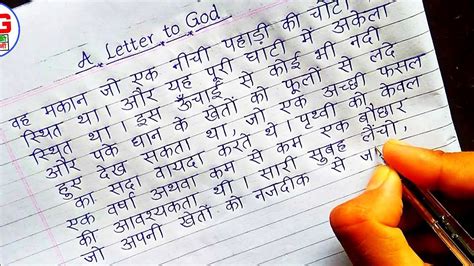 A Letter to God
वह मकान जो एक नीची पहाड़ी की चोटी
स्थित था। और यह पूरी घाटी में अकेला
स्थित था। इस ऊँचाई से कोई भी नदी
और पके धान के खेतों को फूलों से लदे
हुए देख सकता था, जो एक अच्छी फसल
का सदा वायदा करते थे। पृथ्वी को केवल
एक वर्षा अथवा कम से कम एक बौछार
की आवश्यकता थी। सारी सुबह लेंचो,
जो अपनी खेतों को नजदीक से जा